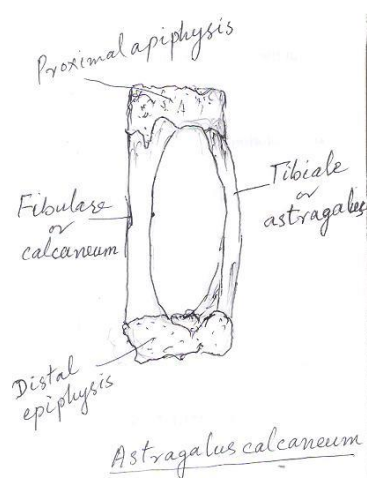 Proximal apiphysis
Fibulase
or
calcaneum
Tibiale
or
astragalus
Distal
epiphysis
Astragalus calcaneum